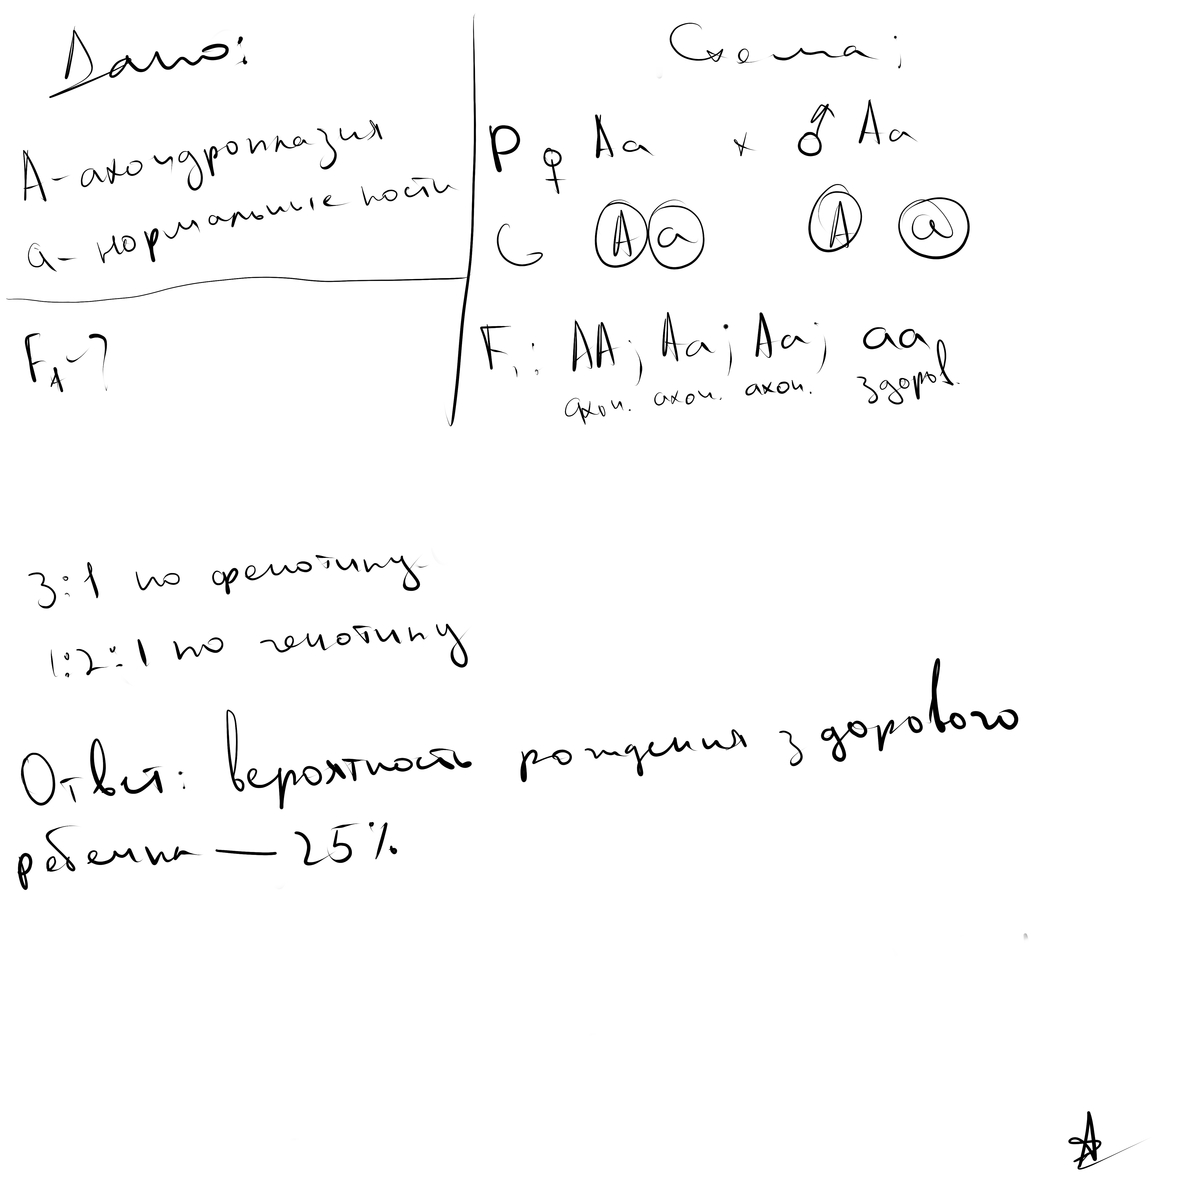 Дано:
А - ахондроплазия
а - нормальные кости
F₁ - ?
Схема:
P ♀ Aa x ♂ Aa
G A a A a
F₁: AA; Aa; Aa; aa
ахон. ахон. ахон. здоров.
3:1 по фенотипу
1:2:1 по генотипу
Ответ: вероятность рождения здорового
ребенка — 25%